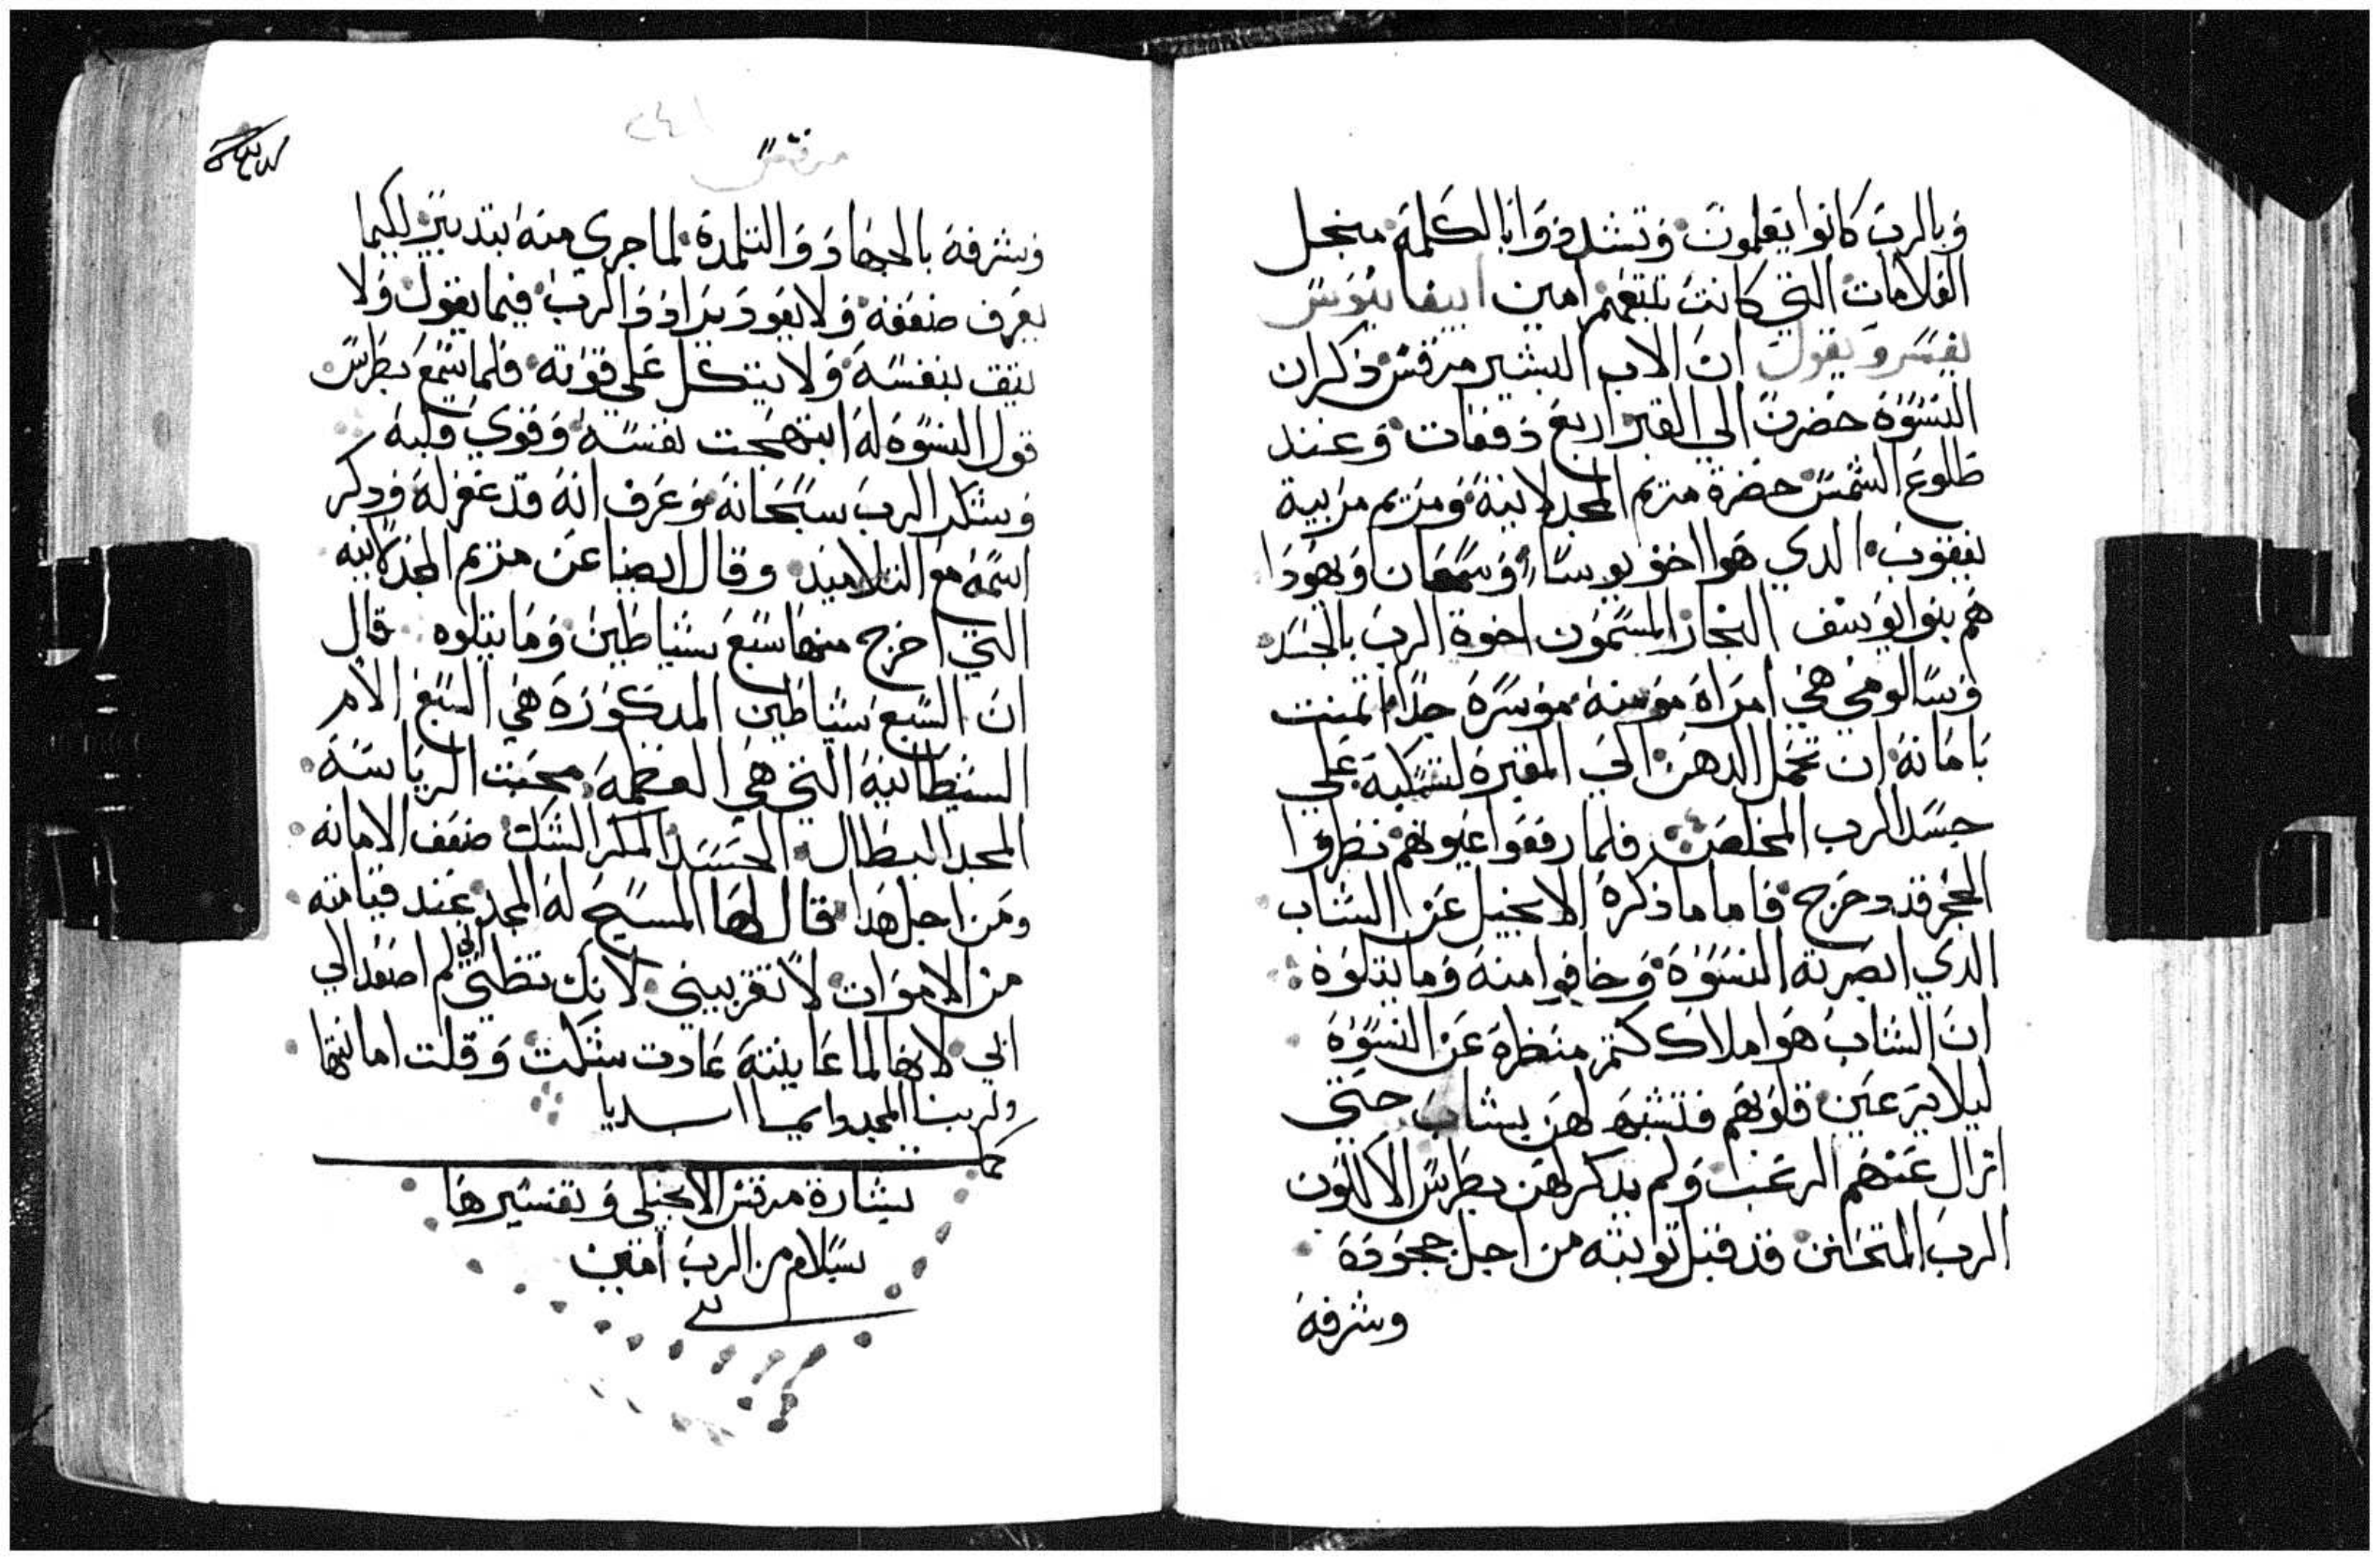 وبالرب كانوا يعلمون وتشددوا بالكلمة منجل
العلامات التي كانت تتبعهم امين ابيفانيوس
يفسر ويقول ان الاب البشير مرقس ذكر ان
النسوة حضرن الي القبر اربع دفعات وعند
طلوع الشمس حضرة مريم المجدلانية ومريم مربية
يعقوب الدي هوا اخو يوسا وسمعان ويهودا
هم بنوا يوسف النجار المسمون اخوة الرب بالجسد
وسالومي هي امراة مؤمنة موسرة جدا اتمنت
بامانة ان تحمل الدهن الي المقبرة لتسكبة علي
جسد الرب المخلص فلما رفعوا عيونهم نظروا
الحجر قد دحرج فاما ما ذكرة الانجيل عن الشاب
الدي ابصرته النسوة وخافوا منه وما يتلوة
ان الشاب هوا ملاك كتم منظرة عن النسوة
ليلا يرعبن قلوبهم فتشبه لهن بشاب حتي
ازال عنهم الرعب ولم يدكر لهن بطرس الا لكون
الرب المتحانن قد قبل توبته من اجل جحودة
وشرفة
مرقس
وشرفة بالجهاد والتلمدة لما جري منه بتدبير لكيما
يعرف ضعفه ولا يعود يرادد الرب فيما يقول ولا
يتق بنفسه ولا يتكل علي قوته فلما سمع بطرس
قول النسوة له ابتهجت نفسه وقوي قلبه
وشكر الرب سبحانه وعرف انه قد غفر له ودكر
اسمه مع التلاميذ وقال ايضا عن مريم المجدلانيه
التي اخرج منها سبع شياطين وما يتلوه قال
ان السبع شياطين المدكورة هي السبع الام
الشيطانية التي هي العظمة محبت الرياسة
المجد البطال الحسد المكر الشك ضعف الامانه
ومن اجل هدا قال لها المسيح له المجد عند قيامته
من الاموات لا تقربيني لانك تظني اني لم اصعد الي
ابي لانها لما عاينته عادت شكت وقلت امانتها
ولربنا المجد دايما ابديا
بشارة مرقس الانجيلي وتفسيرها
بسلام من الرب امين